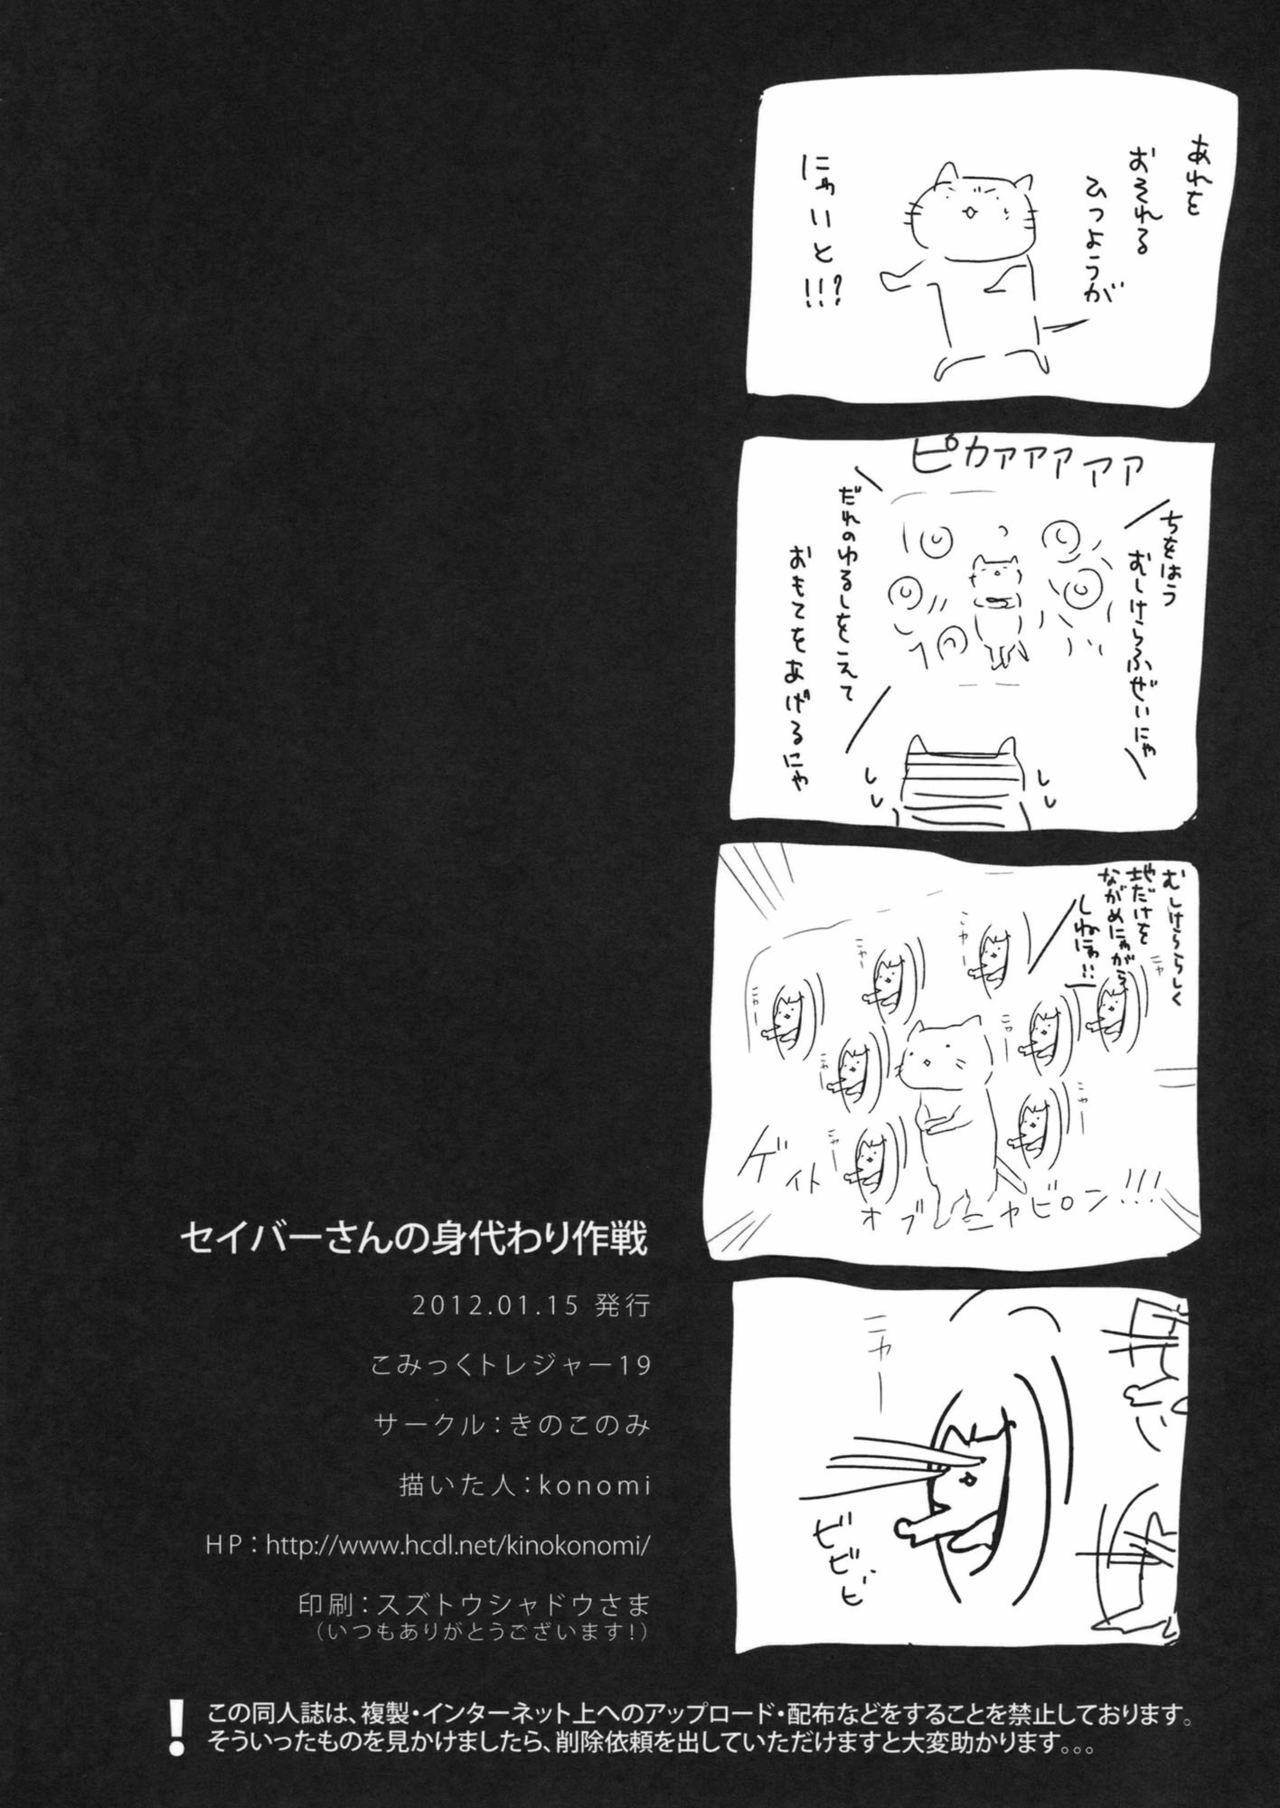 あれを
おそれる
ひつようが
にゃいと!!!?
ピカァァァァァ
ちをはう
むしけらふぜいにゃ
だれのゆるしをえて
おもてをあげるにゃ
むしけららしく
地だけを
ながめにゃがら
しねにゃ!!
ニャー
ニャー
ニャー
ニャ
ニャー
ニャー
ニャー
ニャー
ゲイト
オブニャビロン!!!
ニャー
ビビビ
セイバーさんの身代わり作戦
2012.01.15 発行
こみっくトレジャー19
サークル：きのこのみ
描いた人：konomi
HP：http://www.hcdl.net/kinokonomi/
印刷：スズトウシャドウさま
（いつもありがとうございます！）
！この同人誌は、複製・インターネット上へのアップロード・配布などをすることを禁止しております。
そういったものを見かけましたら、削除依頼を出していただけますと大変助かります。。。